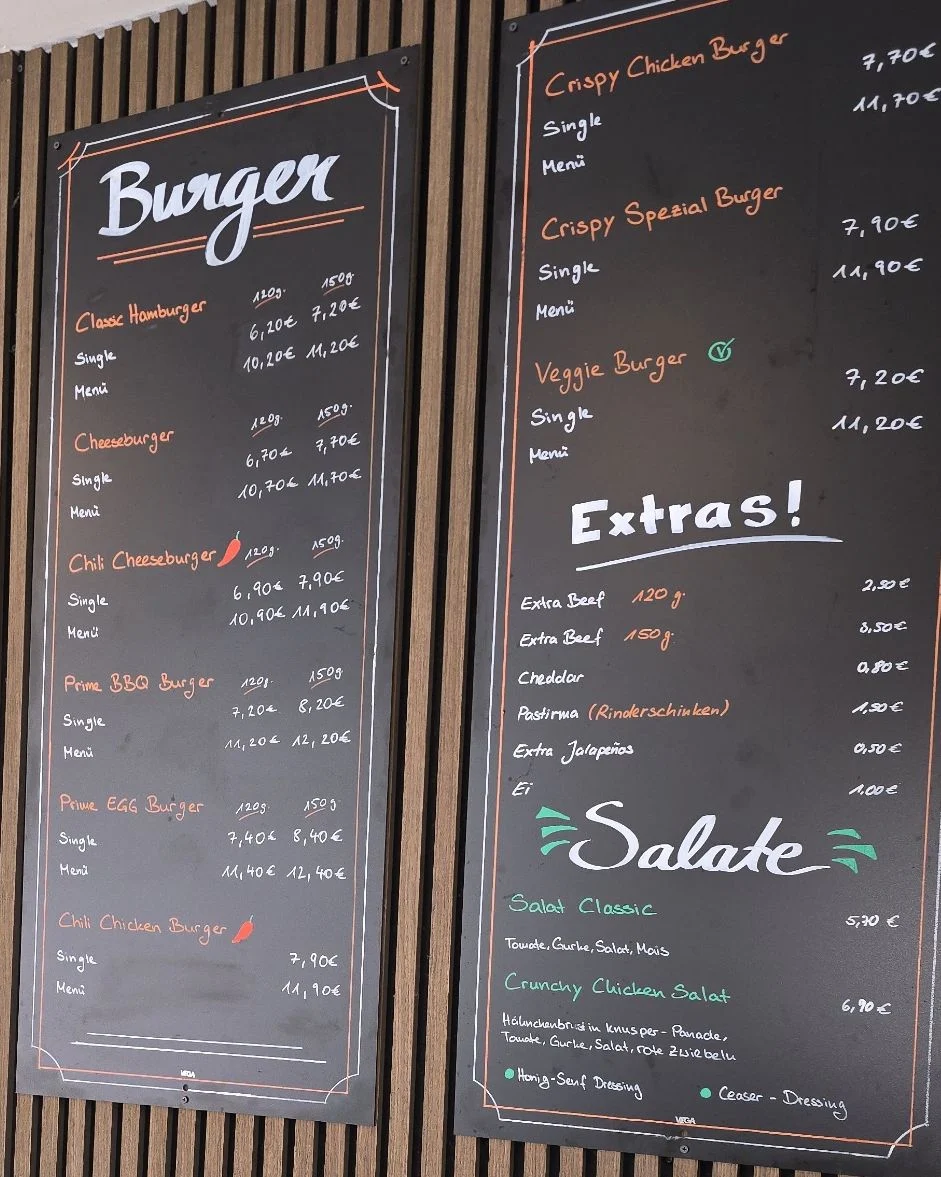 Burger
Classic Hamburger 120g. 150g.
Single 6,20€ 7,20€
Menü 10,20€ 11,20€
Cheeseburger 120g. 150g.
Single 6,70€ 7,70€
Menü 10,70€ 11,70€
Chili Cheeseburger 120g. 150g.
Single 6,90€ 7,90€
Menü 10,90€ 11,90€
Prime BBQ Burger 120g. 150g.
Single 7,20€ 8,20€
Menü 11,20€ 12,20€
Prime EGG Burger 120g. 150g
Single 7,40€ 8,40€
Menü 11,40€ 12,40€
Chili Chicken Burger
Single 7,90€
Menü 11,90€
VEGA
Crispy Chicken Burger
Single 7,70€
Menü 11,70€
Crispy Spezial Burger
Single 7,90€
Menü 11,90€
Veggie Burger
Single 7,20€
Menü 11,20€
Extras!
Extra Beef 120g. 2,50€
Extra Beef 150g. 3,50€
Cheddar 0,80€
Pastirma (Rinderschinken) 1,50€
Extra Jalapeños 0,50€
Ei 1,00€
Salate
Salat Classic 5,70 €
Tomate, Gurke, Salat, Mais
Crunchy Chicken Salat 6,90€
Hähnchenbrust in Knusper-Panade,
Tomate, Gurke, Salat, rote Zwiebeln
Honig-Senf Dressing Ceaser - Dressing
VEGA